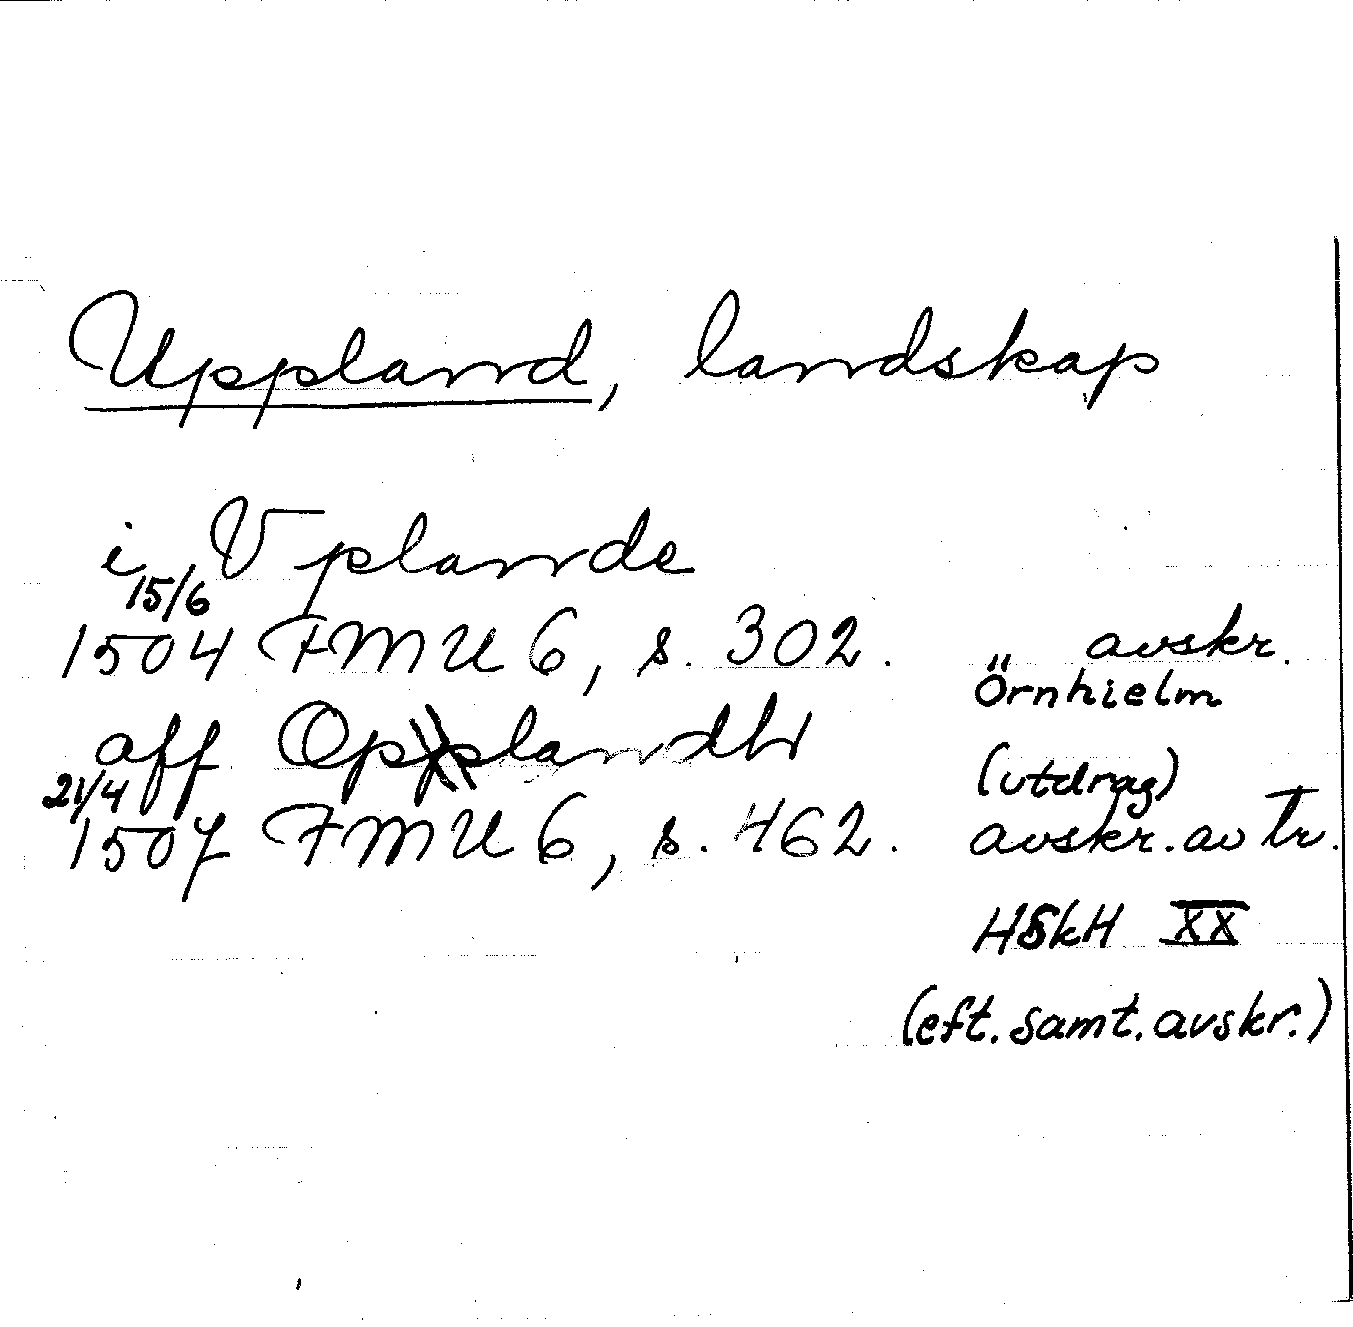 Uppland, landskap
i Vplande
15/6
1504 FMU 6, s. 302. avskr.
Örnhielm
aff Oplandh
(utdrag)
21/4
1507 FMU 6, s. 462. avskr. av tr.
HSkH XX
(eft. samt. avskr.)